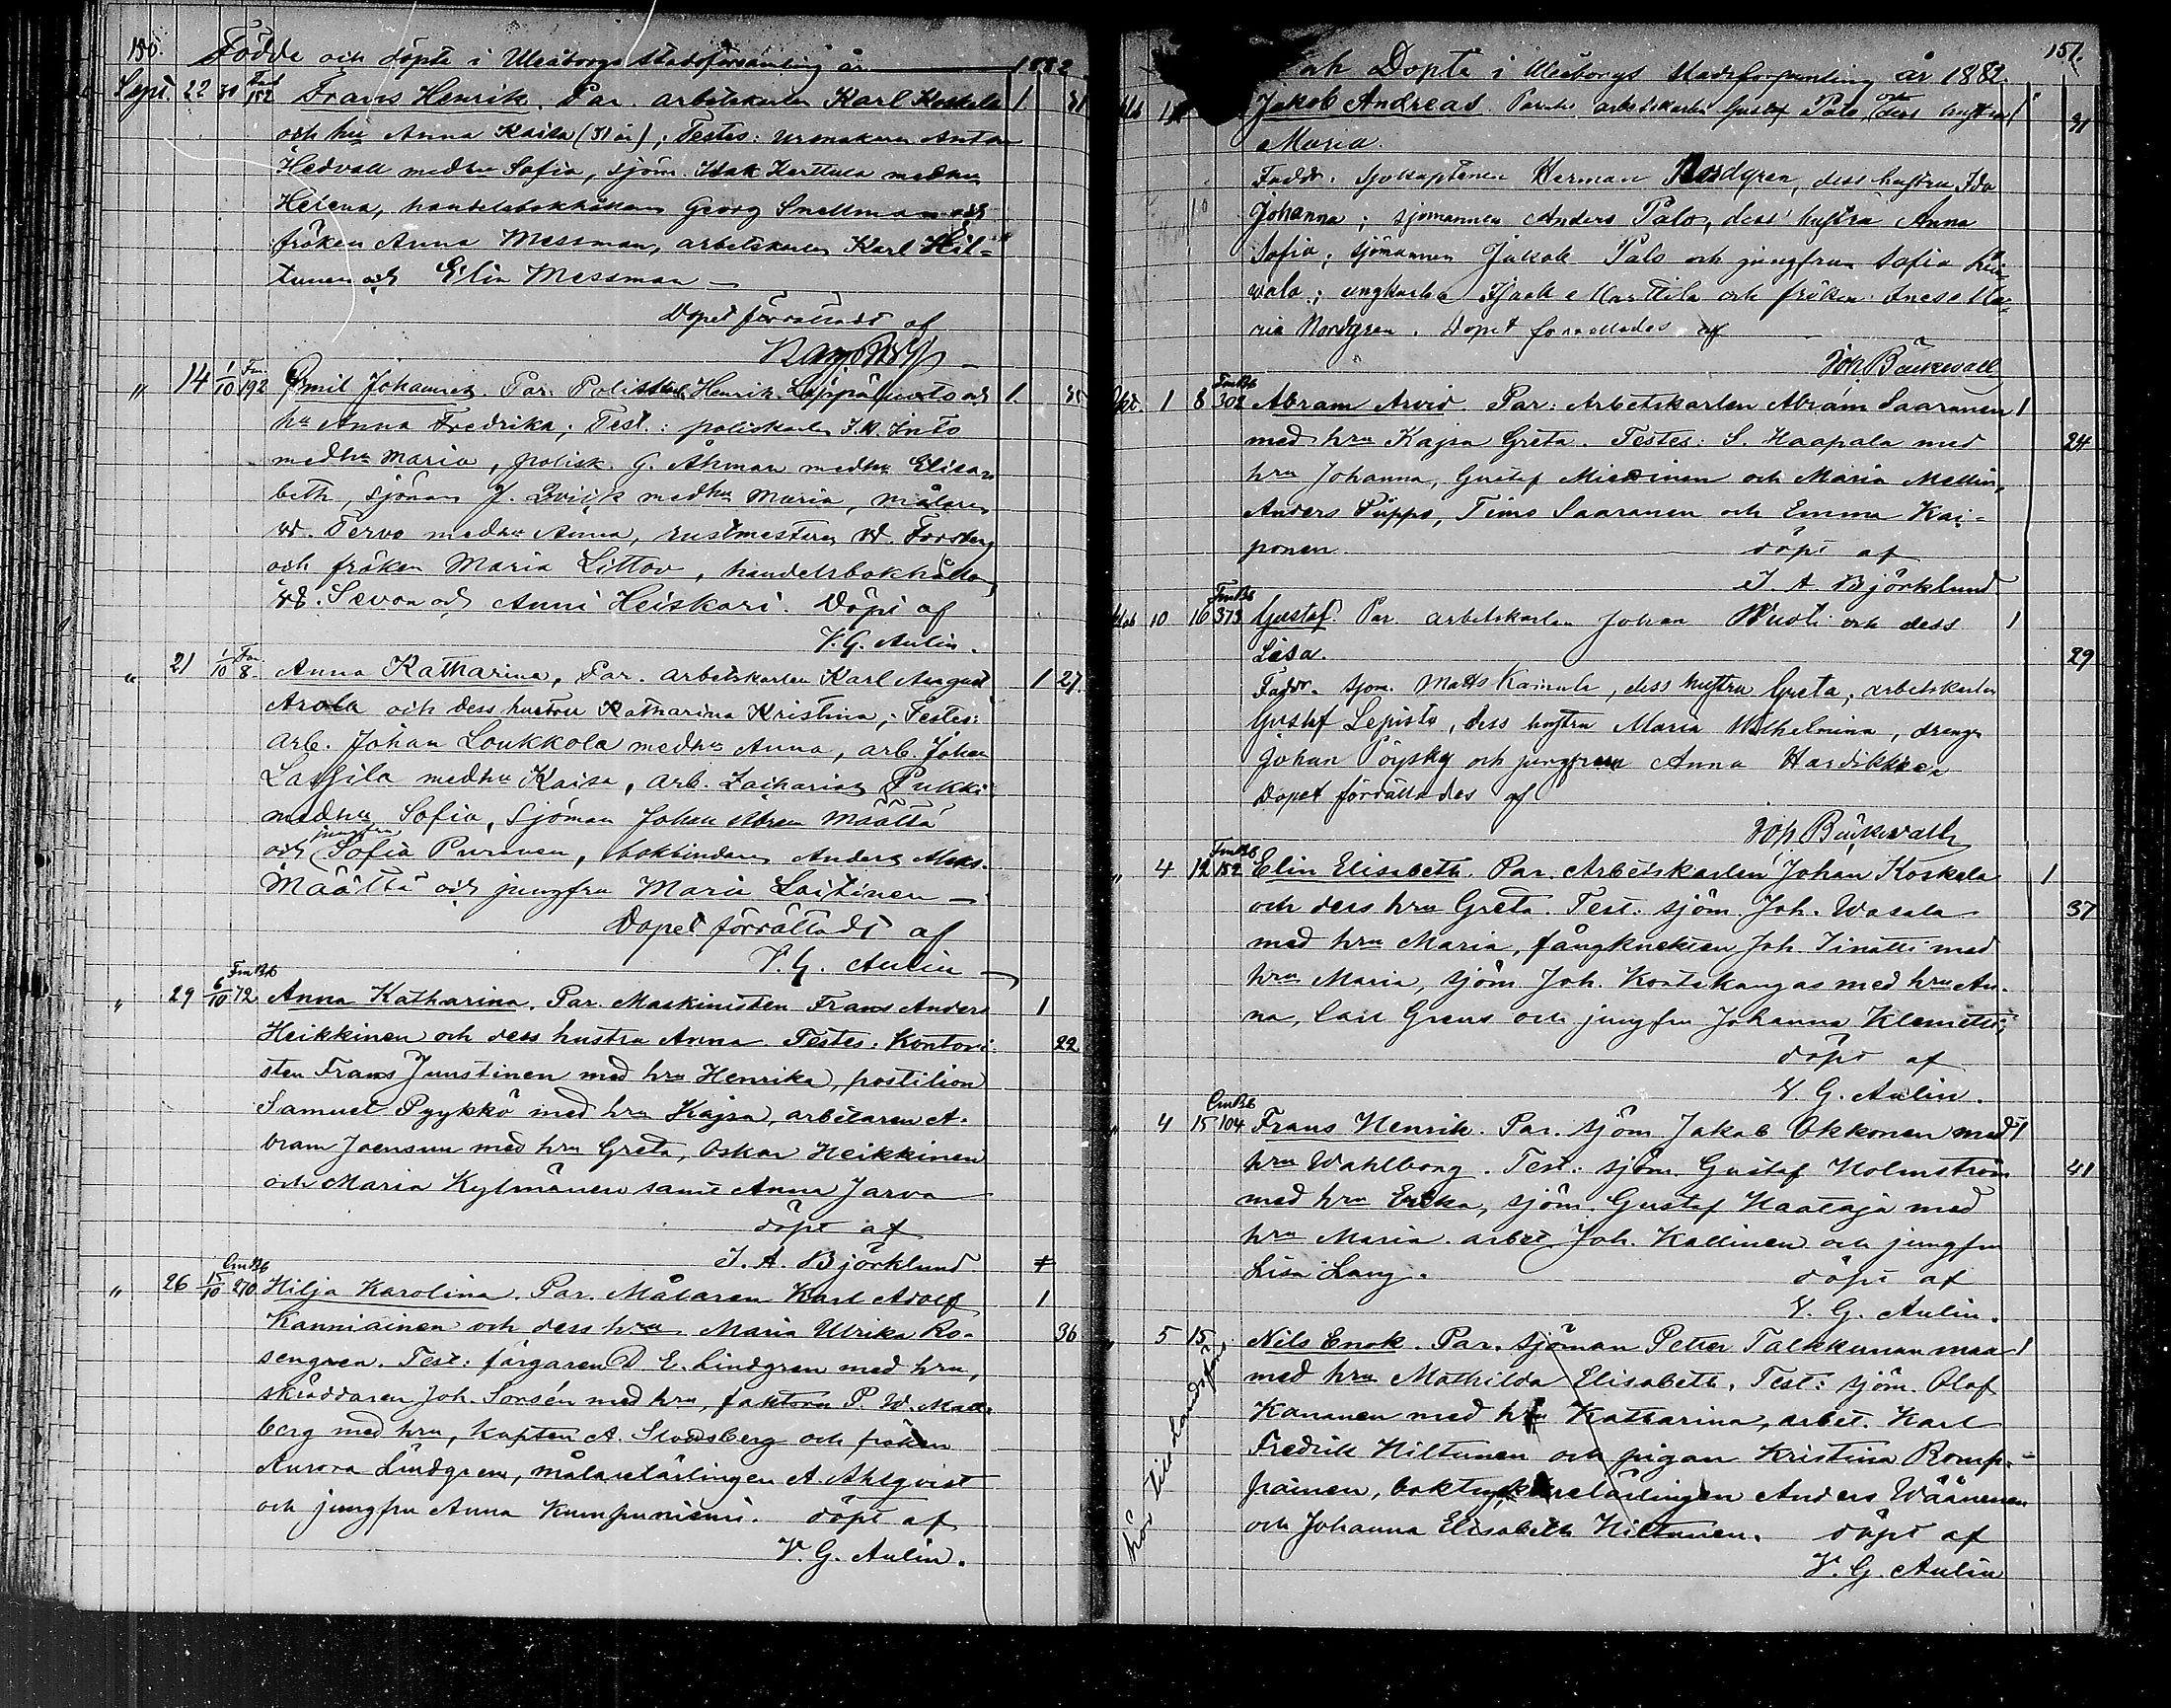 150. Födde och döpte i Uleåborgs stadsförsamling år 1882
Sept. 22 30 FmB 152 Frans Henrik. Par. arbetskarlen Karl Koskela 1 31
och hu Anna Kaisa (31 år); Testes: urmakaren Anton
Hedvall medhu Sofia, sjöm. Isak Karttula medhu
Helena, handelsbokhållaren Georg Snellman och
fröken Anna Messman, arbetskarlen Karl Hil-
tunen och Elin Messman —
Dopet förrättadt af
„ 14 1/10 Fm 192 Emil Johannes. Par. Poliskarlen Henrik och 1. 35
hu Anna Fredrika; Test.: poliskarlen J.W. Into
medhu Maria, polisk. G. Åhman medhu Elisa-
beth, sjöman J. Qvick medhu Maria, målaren
W. Tervo medhu Anna, rustmästaren W. Forsberg
och fröken Maria Littov, handelsbokhållaren
W. Sevon och Anni Heiskari. Döpt af
V. G. Aulin.
„ 21 1/10 Fm 8. Anna Katharina, Par. arbetskarlen Karl August 1 27.
Arola och dess hustru Katharina Kristina; Testes:
arb. Johan Loukkola medhu Anna, arb. Johan
Lassila medhu Kaisa, arb. Zacharias Pukki
medhu Sofia, Sjöman Johan Abram Määttä
och jungfru Sofia Puranen, bokbindaren Anders Aleks.
Määttä och jungfru Maria Laitinen —
Dopet förrättadt af
V. G. Aulin —
„ 29 6/10 FmBb 72 Anna Katharina. Par. Maskinisten Frans Anders 1
Heikkinen och dess hustru Anna. Testes: Kontori- 22
sten Frans Juustinen med hru Henrika, postilion
Samuel Pyykkö med hru Kajsa, arbetaren A-
bram Joensuu med hru Greta, Oskar Heikkinen
och Maria Kylmänen samt Anna Jarva
döpt af
J. A. Björklund
„ 26 15/10 CmBb 270 Hilja Karolina. Par. Målaren Karl Adolf 1
Kanniainen och dess hru Maria Ulrika Ro- 36
sengren. Test: färgaren D E. Lindgren med hru,
skräddaren Joh. Sorsén med hru, faktorn P. W. Mat-
berg med hru, kapten A. Slodsberg och fröken
Aurora Lindgren, målarelärlingen A. Ahlqvist
och jungfru Anna Kumpuniemi. döpt af
V. G. Aulin.
151.
och Döpte i Uleåborgs stadsförsamling år 1882.
Jakob Andreas. arbetskarlen Gustaf Palo, och dess hustru 1 31
Maria.
Faddr. Sjökaptenen Herman Nordgren, dess hustru Ida
Johanna; sjömannen Anders Palo, dess hustru Anna
Sofia; sjömannen Jakob Palo och jungfrun Sofia Lii-
wala; ungkarlen Isak Marttila och fröken Inese Ma-
ria Nordgren. Dopet förrättades af
Joh. Bäckwall
Okt. 1 8 FmBb 302 Abram Arvid. Par: Arbetskarlen Abram Saaranen 1
med hru Kajsa Greta. Testes: S. Haapala med 24
hru Johanna, Gustaf Miettinen och Maria Mellin,
Anders Piippo, Timo Saaranen och Emma Kai-
ponen. döpt af
J. A. Björklund
10 16 FmBb 373 Gustaf. Par arbetskarlen Johan och dess 1
Lisa. 29
Faddr. sjöm. Matts Kainula, dess hustru Greta; arbetskarlen
Gustaf Lepistö, dess hustru Maria Wilhelmina, drengen
Johan Pöysky och jungfrun Anna Hardikkeen
Dopet förrättades af
Joh. Bäckwall
„ 4 12 FmBb 152 Elin Elisabeth. Par. Arbetskarlen Johan Koskela 1
och dess hru Greta. Test: sjöm. Joh. Wasala 37
med hru Maria, fångknekten Joh. Iinatti med
hru Maria, sjöm. Joh. Kontekangas med hru An-
na, Carl Grens och jungfru Johanna Klemetti,
döpt af
V. G. Aulin.
„ 4 15 CmBb 104 Frans Henrik. Par. sjöm Jakob Okkonen med 1
hru Wahlborg. Test: sjöm. Gustaf Holmström 41
med hru Erika, sjöm. Gustaf Haataja med
hru Maria. arbet. Joh. Kallinen och jungfru
Lisa Lang. döpt af
V. G. Aulin.
„ 5 15 Nils Enok. Par. sjöman Petter Talkkunanmaa 1
med hru Mathilda Elisabeth. Test: sjöm. Olof
Kananen med hru Katharina, arbet. Karl
Fredrik Hiltunen och pigan Kristina Romp-
painen, boktryckerelärlingen Anders Wäänenen
och Johanna Elisabeth Hiltunen. döpt af
V. G. Aulin
hör till Landsförs.